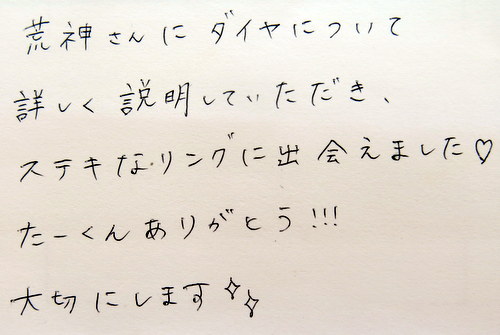 荒神さんに ダイヤについて
詳しく 説明していただき、
ステキな・リングに出会えました♡
たーくんありがとう!!!
大切にします✧✧